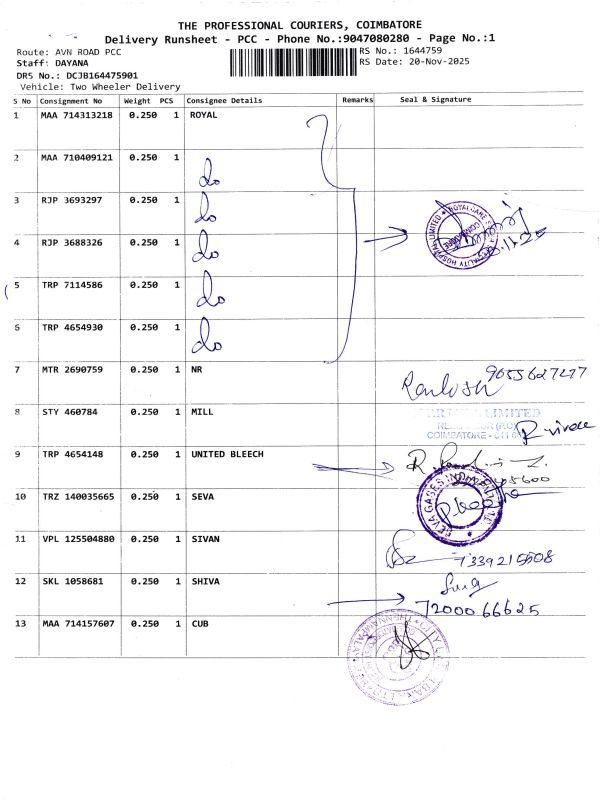 THE PROFESSIONAL COURIERS, COIMBATORE
Delivery Runsheet - PCC - Phone No.:9047080280 - Page No.:1
Route: AVN ROAD PCC RS No.: 1644759
Staff: DAYANA RS Date: 20-Nov-2025
DRS No.: DCJB164475901
Vehicle: Two Wheeler Delivery
S No Consignment No Weight PCS Consignee Details Remarks Seal & Signature
1 MAA 714313218 0.250 1 ROYAL
2 MAA 710409121 0.250 1 do
3 RJP 3693297 0.250 1 do
4 RJP 3688326 0.250 1 do
5 TRP 7114586 0.250 1 do
6 TRP 4654930 0.250 1 do
7 MTR 2690759 0.250 1 NR
8 STY 460784 0.250 1 MILL
LIMITED
COIMBATORE
9 TRP 4654148 0.250 1 UNITED BLEECH
10 TRZ 140035665 0.250 1 SEVA
11 VPL 125504880 0.250 1 SIVAN
12 SKL 1058681 0.250 1 SHIVA
7200066625
13 MAA 714157607 0.250 1 CUB